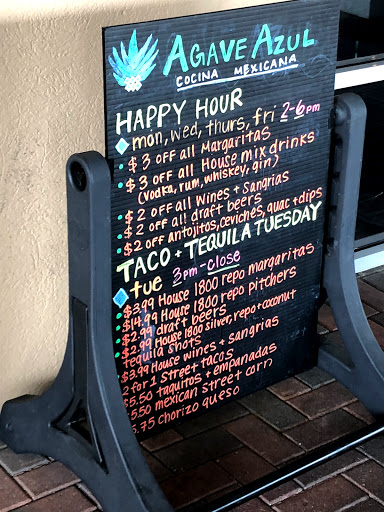 AGAVE AZUL
COCINA MEXICANA
HAPPY HOUR
mon, wed, thurs, fri 2-6pm
$3 OFF all Margaritas
$3 OFF all House mix drinks
(vodka, rum, whiskey, gin)
$2 OFF all Wines + Sangrias
$2 OFF all draft beers
$2 OFF antojitos, ceviches, guac + dips
TACO + TEQUILA TUESDAY
tue 3pm-close
$3.99 House 1800 repo margaritas
$14.99 House 1800 repo pitchers
$2.99 draft beers
$2.99 House 1800 silver, repo + coconut
tequila shots
$3.99 House wines + sangrias
2 for 1 Street tacos
$5.50 taquitos + empanadas
5.50 mexican street corn
5.75 chorizo queso